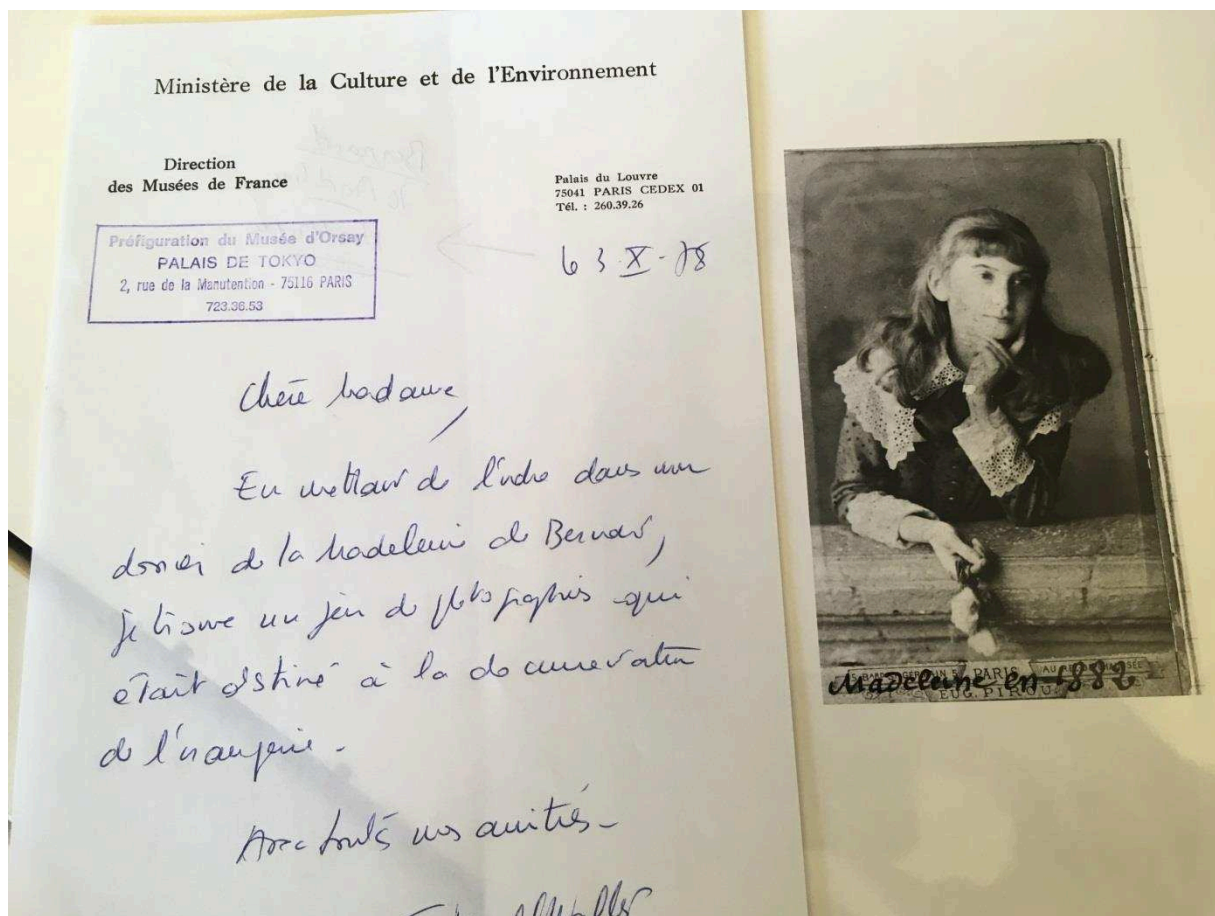 Ministère de la Culture et de l'Environnement
Direction
des Musées de France
Palais du Louvre
75041 PARIS CEDEX 01
Tél. : 260.39.26
Préfiguration du Musée d'Orsay
PALAIS DE TOKYO
2, rue de la Manutention - 75116 PARIS
723.36.53
3-X-78
Chère Madame,
En mettant de l'ordre dans un
dossier de la Madeleine de Bernard,
je trouve un jeu de photographies qui
était destiné à la documentation
de l'Orangerie.
Avec toutes mes amitiés
PARIS
EUG. PIROU
Madeleine en 1882